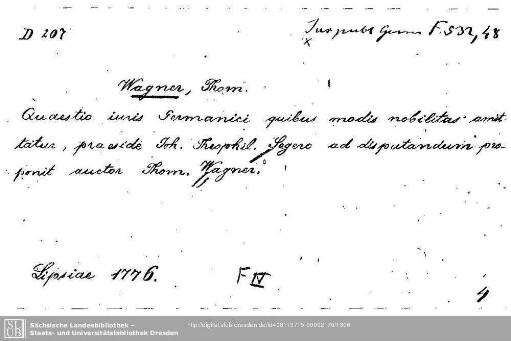 D 207
Jus publ. Germ. F. 532, 48
x
Wagner, Thom.
Quaestio iuris Germanici quibus modis nobilitas amit
tatur, praeside Joh. Theophil. Segero ad disputandum pro
ponit auctor Thom. Wagner.
Lipsiae 1776.
F IV
4
SLUB
Sächsische Landesbibliothek –
Staats- und Universitätsbibliothek Dresden